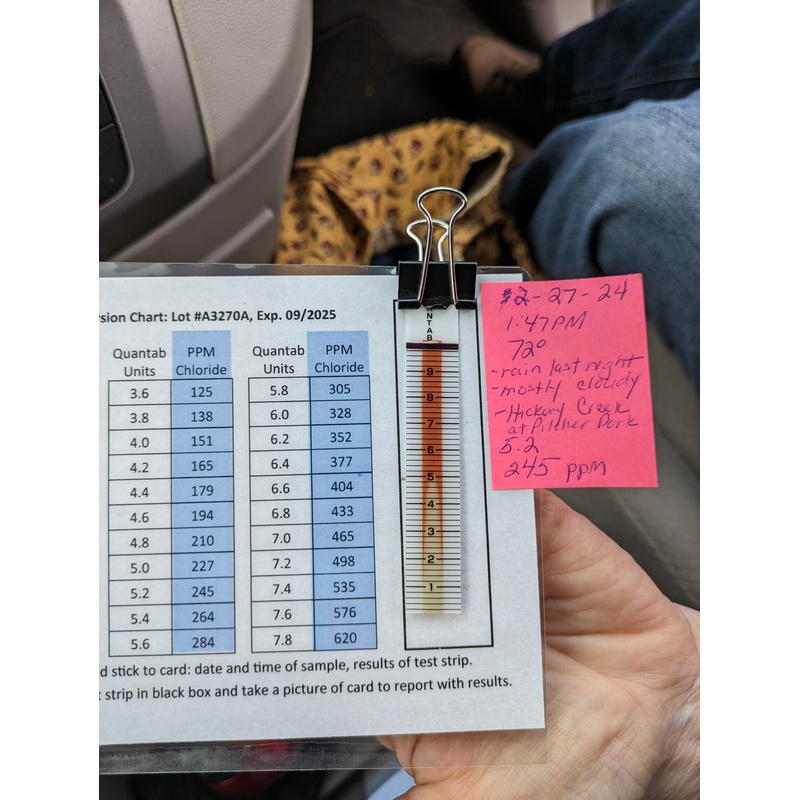 rsion Chart: Lot #A3270A, Exp. 09/2025
Quantab Units PPM Chloride Quantab Units PPM Chloride
3.6 125 5.8 305
3.8 138 6.0 328
4.0 151 6.2 352
4.2 165 6.4 377
4.4 179 6.6 404
4.6 194 6.8 433
4.8 210 7.0 465
5.0 227 7.2 498
5.2 245 7.4 535
5.4 264 7.6 576
5.6 284 7.8 620
d stick to card: date and time of sample, results of test strip.
strip in black box and take a picture of card to report with results.
NTAB
9
8
7
6
5
4
3
2
1
2-27-24
1:47PM
72°
-rain last night
-mostly cloudy
-Hickory Creek
at Pilcher Park
5.2
245 ppm